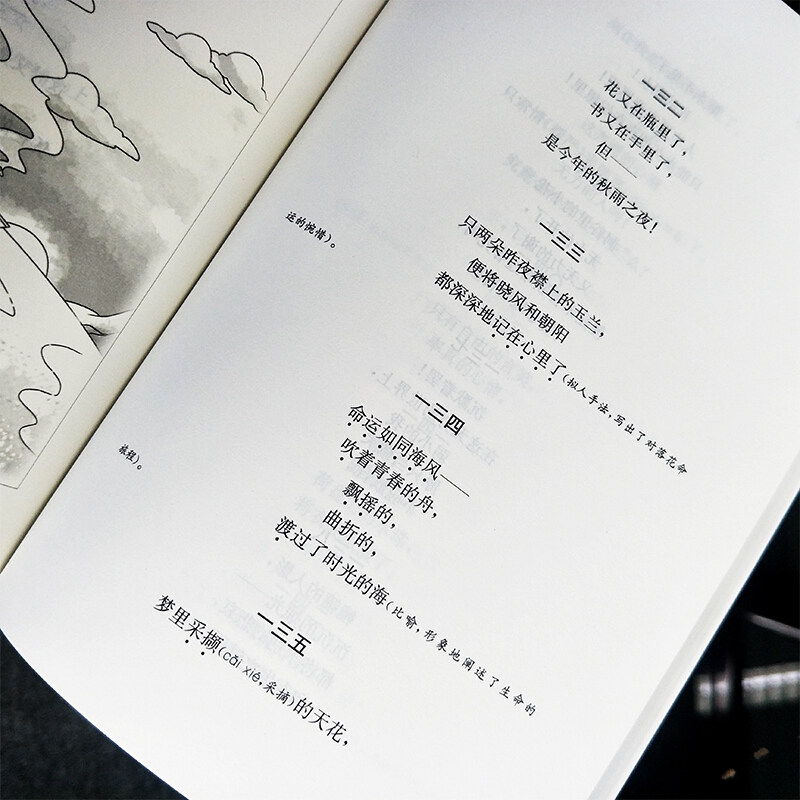 一三二
花又在瓶里了，
书又在手里了，
但——
是今年的秋雨之夜！
一三三
只两朵昨夜襟上的玉兰，
便将晓风和朝阳
都深深地记在心里了(拟人手法，写出了对落花命
运的惋惜)。
一三四
命运如同海风——
吹着青春的舟，
飘摇的，
曲折的，
渡过了时光的海(比喻，形象地阐述了生命的
旅程)。
一三五
梦里采撷(cǎi xié，采摘)的天花，